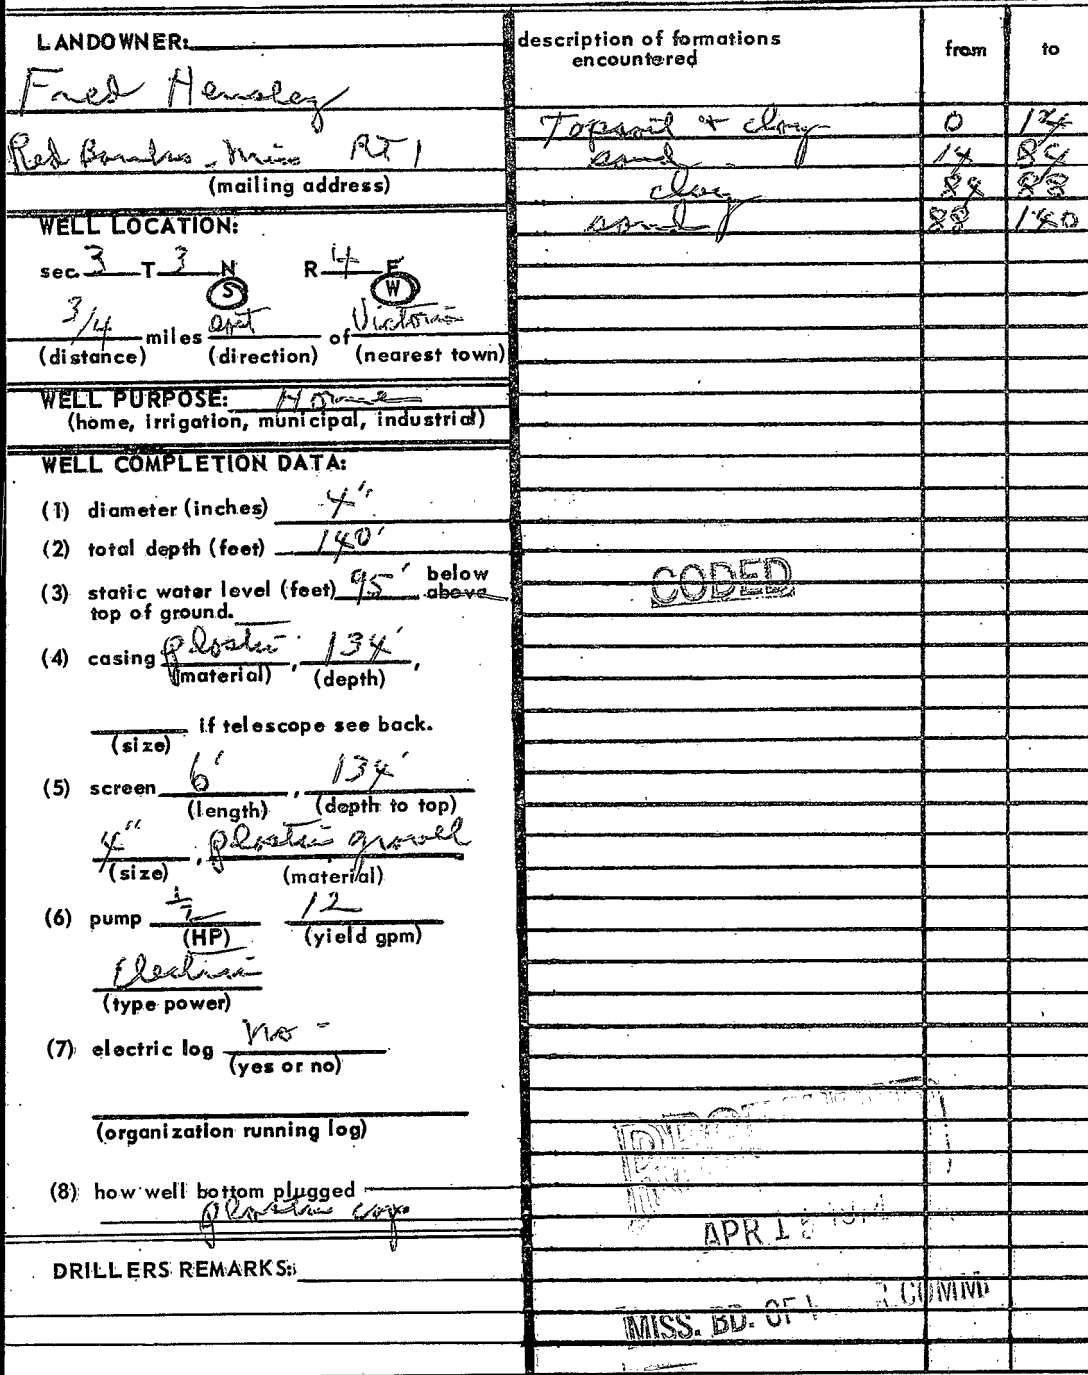 LANDOWNER:
Fred Hensley
Red Banks, Miss RT 1
(mailing address)
WELL LOCATION:
sec. 3 T 3 N R 4 E
S W
3/4 miles of Victoria
(distance) (direction) (nearest town)
WELL PURPOSE: Home
(home, irrigation, municipal, industrial)
WELL COMPLETION DATA:
(1) diameter (inches) 4"
(2) total depth (feet) 140'
(3) static water level (feet) 95' below above
top of ground.
(4) casing plastic, 134',
(material) (depth)
if telescope see back.
(size)
(5) screen 6', 134'
(length) (depth to top)
4", plastic gravel
(size) (material)
(6) pump 1/2 12
(HP) (yield gpm)
Electric
(type power)
(7) electric log no -
(yes or no)
(organization running log)
(8) how well bottom plugged
plastic cap
DRILLERS REMARKS:
description of formations from to
encountered
Topsoil + clay 0 14
sand 14 84
clay 84 88
sand 88 140
CODED
APR 1 1974
MISS. BD. OF COMM.